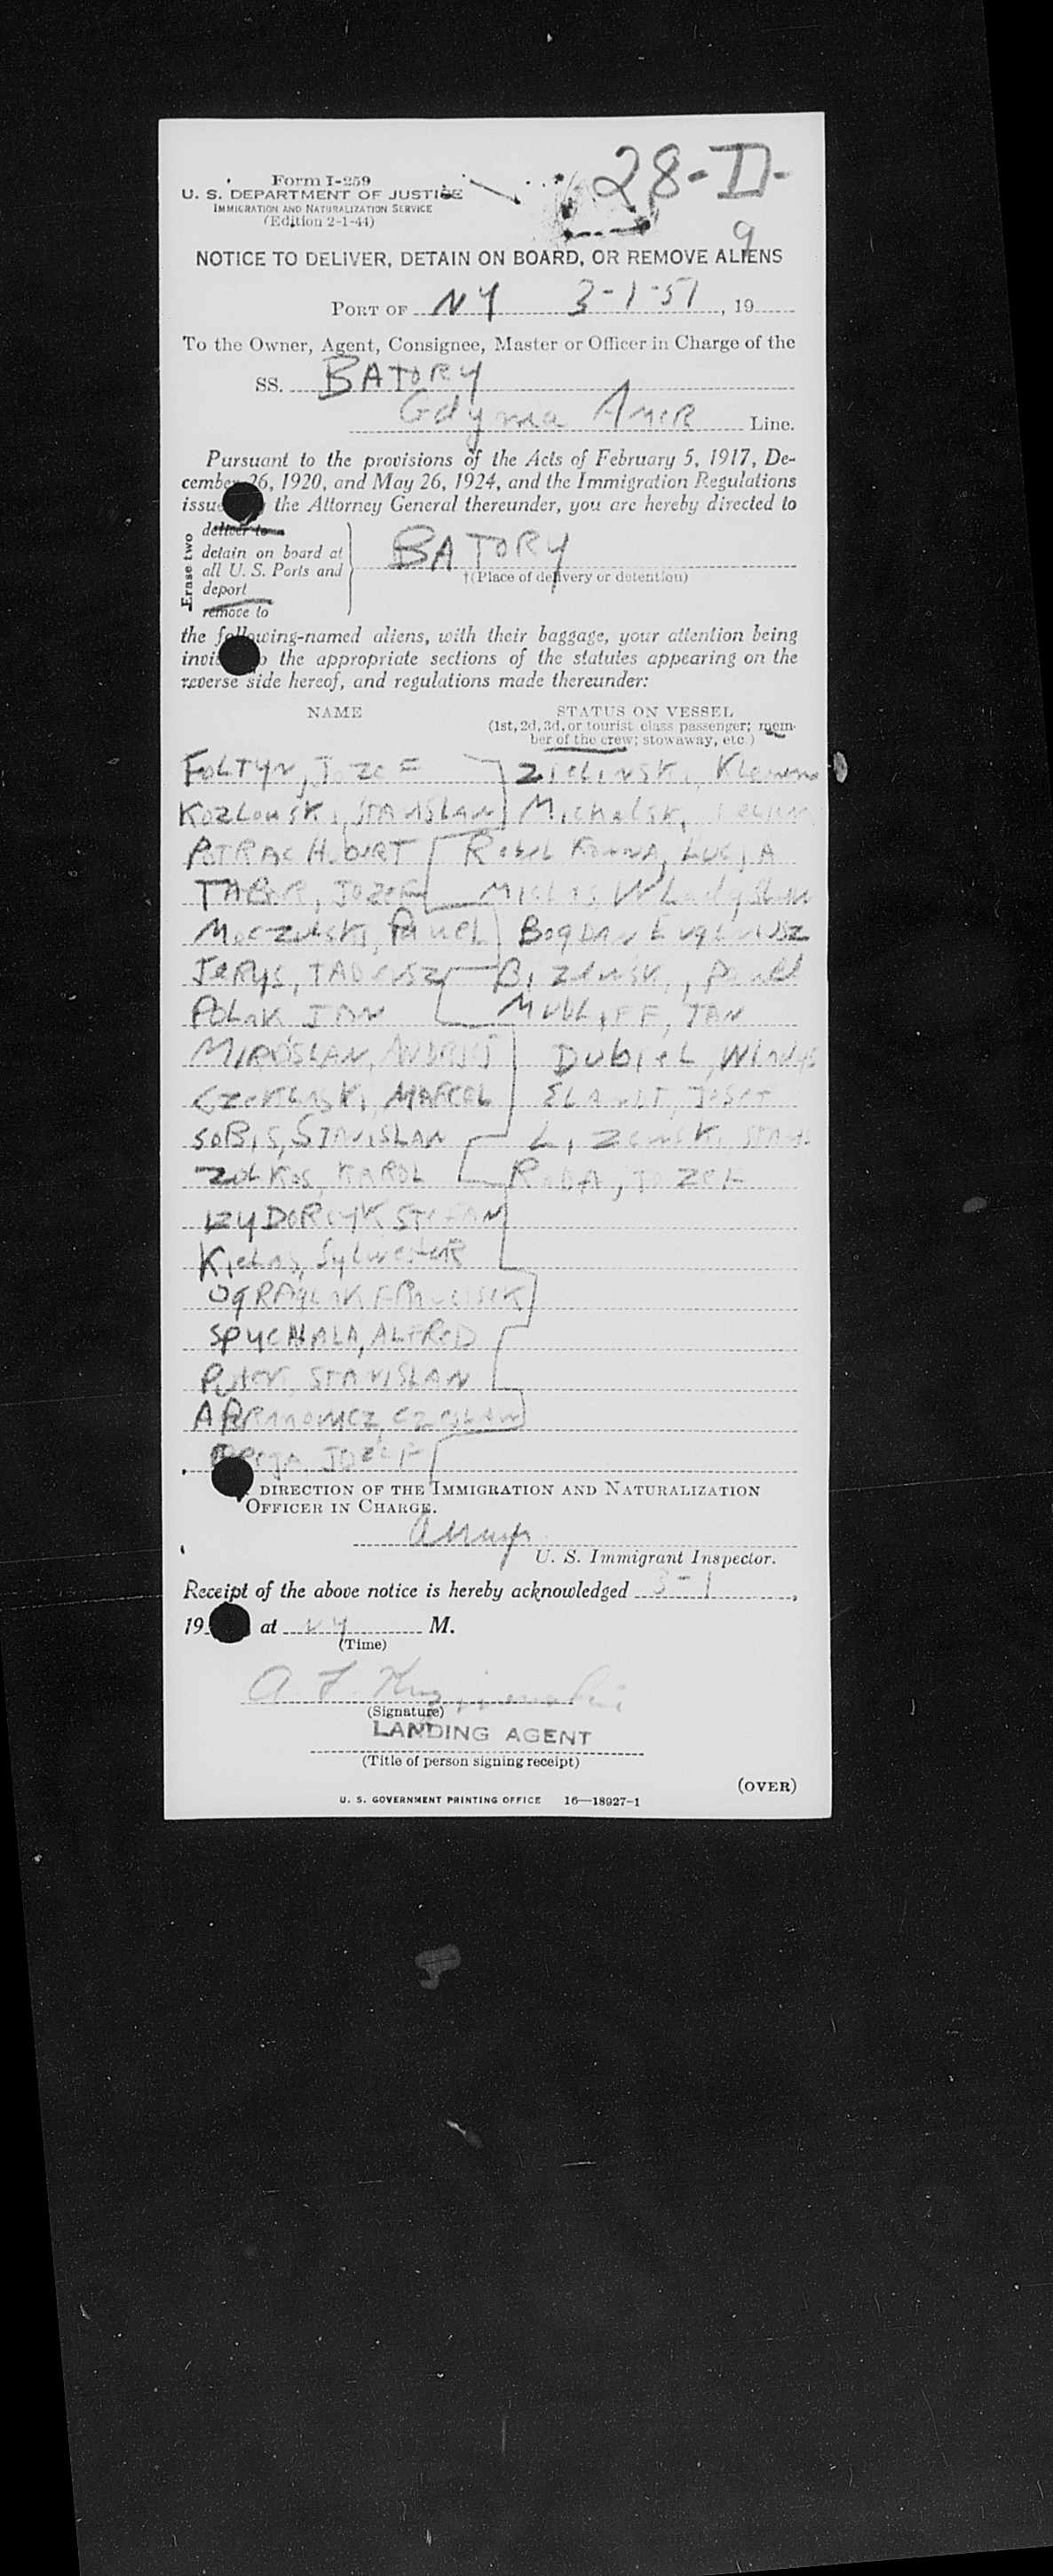 28-II-
9
Form I-259
U. S. DEPARTMENT OF JUSTICE
IMMIGRATION AND NATURALIZATION SERVICE
(Edition 2-1-44)
NOTICE TO DELIVER, DETAIN ON BOARD, OR REMOVE ALIENS
PORT OF NY 3-1-51, 19
To the Owner, Agent, Consignee, Master or Officer in Charge of the
SS. BATORY
Gdynia Amer Line.
Pursuant to the provisions of the Acts of February 5, 1917, De-
cember 26, 1920, and May 26, 1924, and the Immigration Regulations
issue the Attorney General thereunder, you are hereby directed to
Erase two
deliver to
detain on board at
all U. S. Ports and
deport
remove to
BATORY
†(Place of delivery or detention)
the following-named aliens, with their baggage, your attention being
invi the appropriate sections of the statutes appearing on the
reverse side hereof, and regulations made thereunder:
NAME STATUS ON VESSEL
(1st, 2d, 3d, or tourist class passenger; mem-
ber of the crew; stowaway, etc.)
FOLTYN, Jozef Zielinski, Klemens
Kozlowski, STANISLAW Michalski
POTRAC HUBERT
TABOR, JOZEF Wladyslaw
Moczulski, Pawel Bogdan Eugeniusz
JERYS, TADEUSZ Pawel
POLAK JAN JAN
MIROSLAW, ANDRZEJ Dubiel, Wladys
MARCEL
SOBIS, STANISLAW
ZOLKOS, KAROL RODA, JOZEF
IZYDORCYK STEFAN
Kielas, Sylwester
SPYCHALA, ALFRED
STANISLAW
CZESLAW
JOZEF
DIRECTION OF THE IMMIGRATION AND NATURALIZATION
OFFICER IN CHARGE.
U. S. Immigrant Inspector.
Receipt of the above notice is hereby acknowledged 3-1,
19 at NY M.
(Time)
A. F.
(Signature)
LANDING AGENT
(Title of person signing receipt)
(OVER)
U. S. GOVERNMENT PRINTING OFFICE 16—18927-1